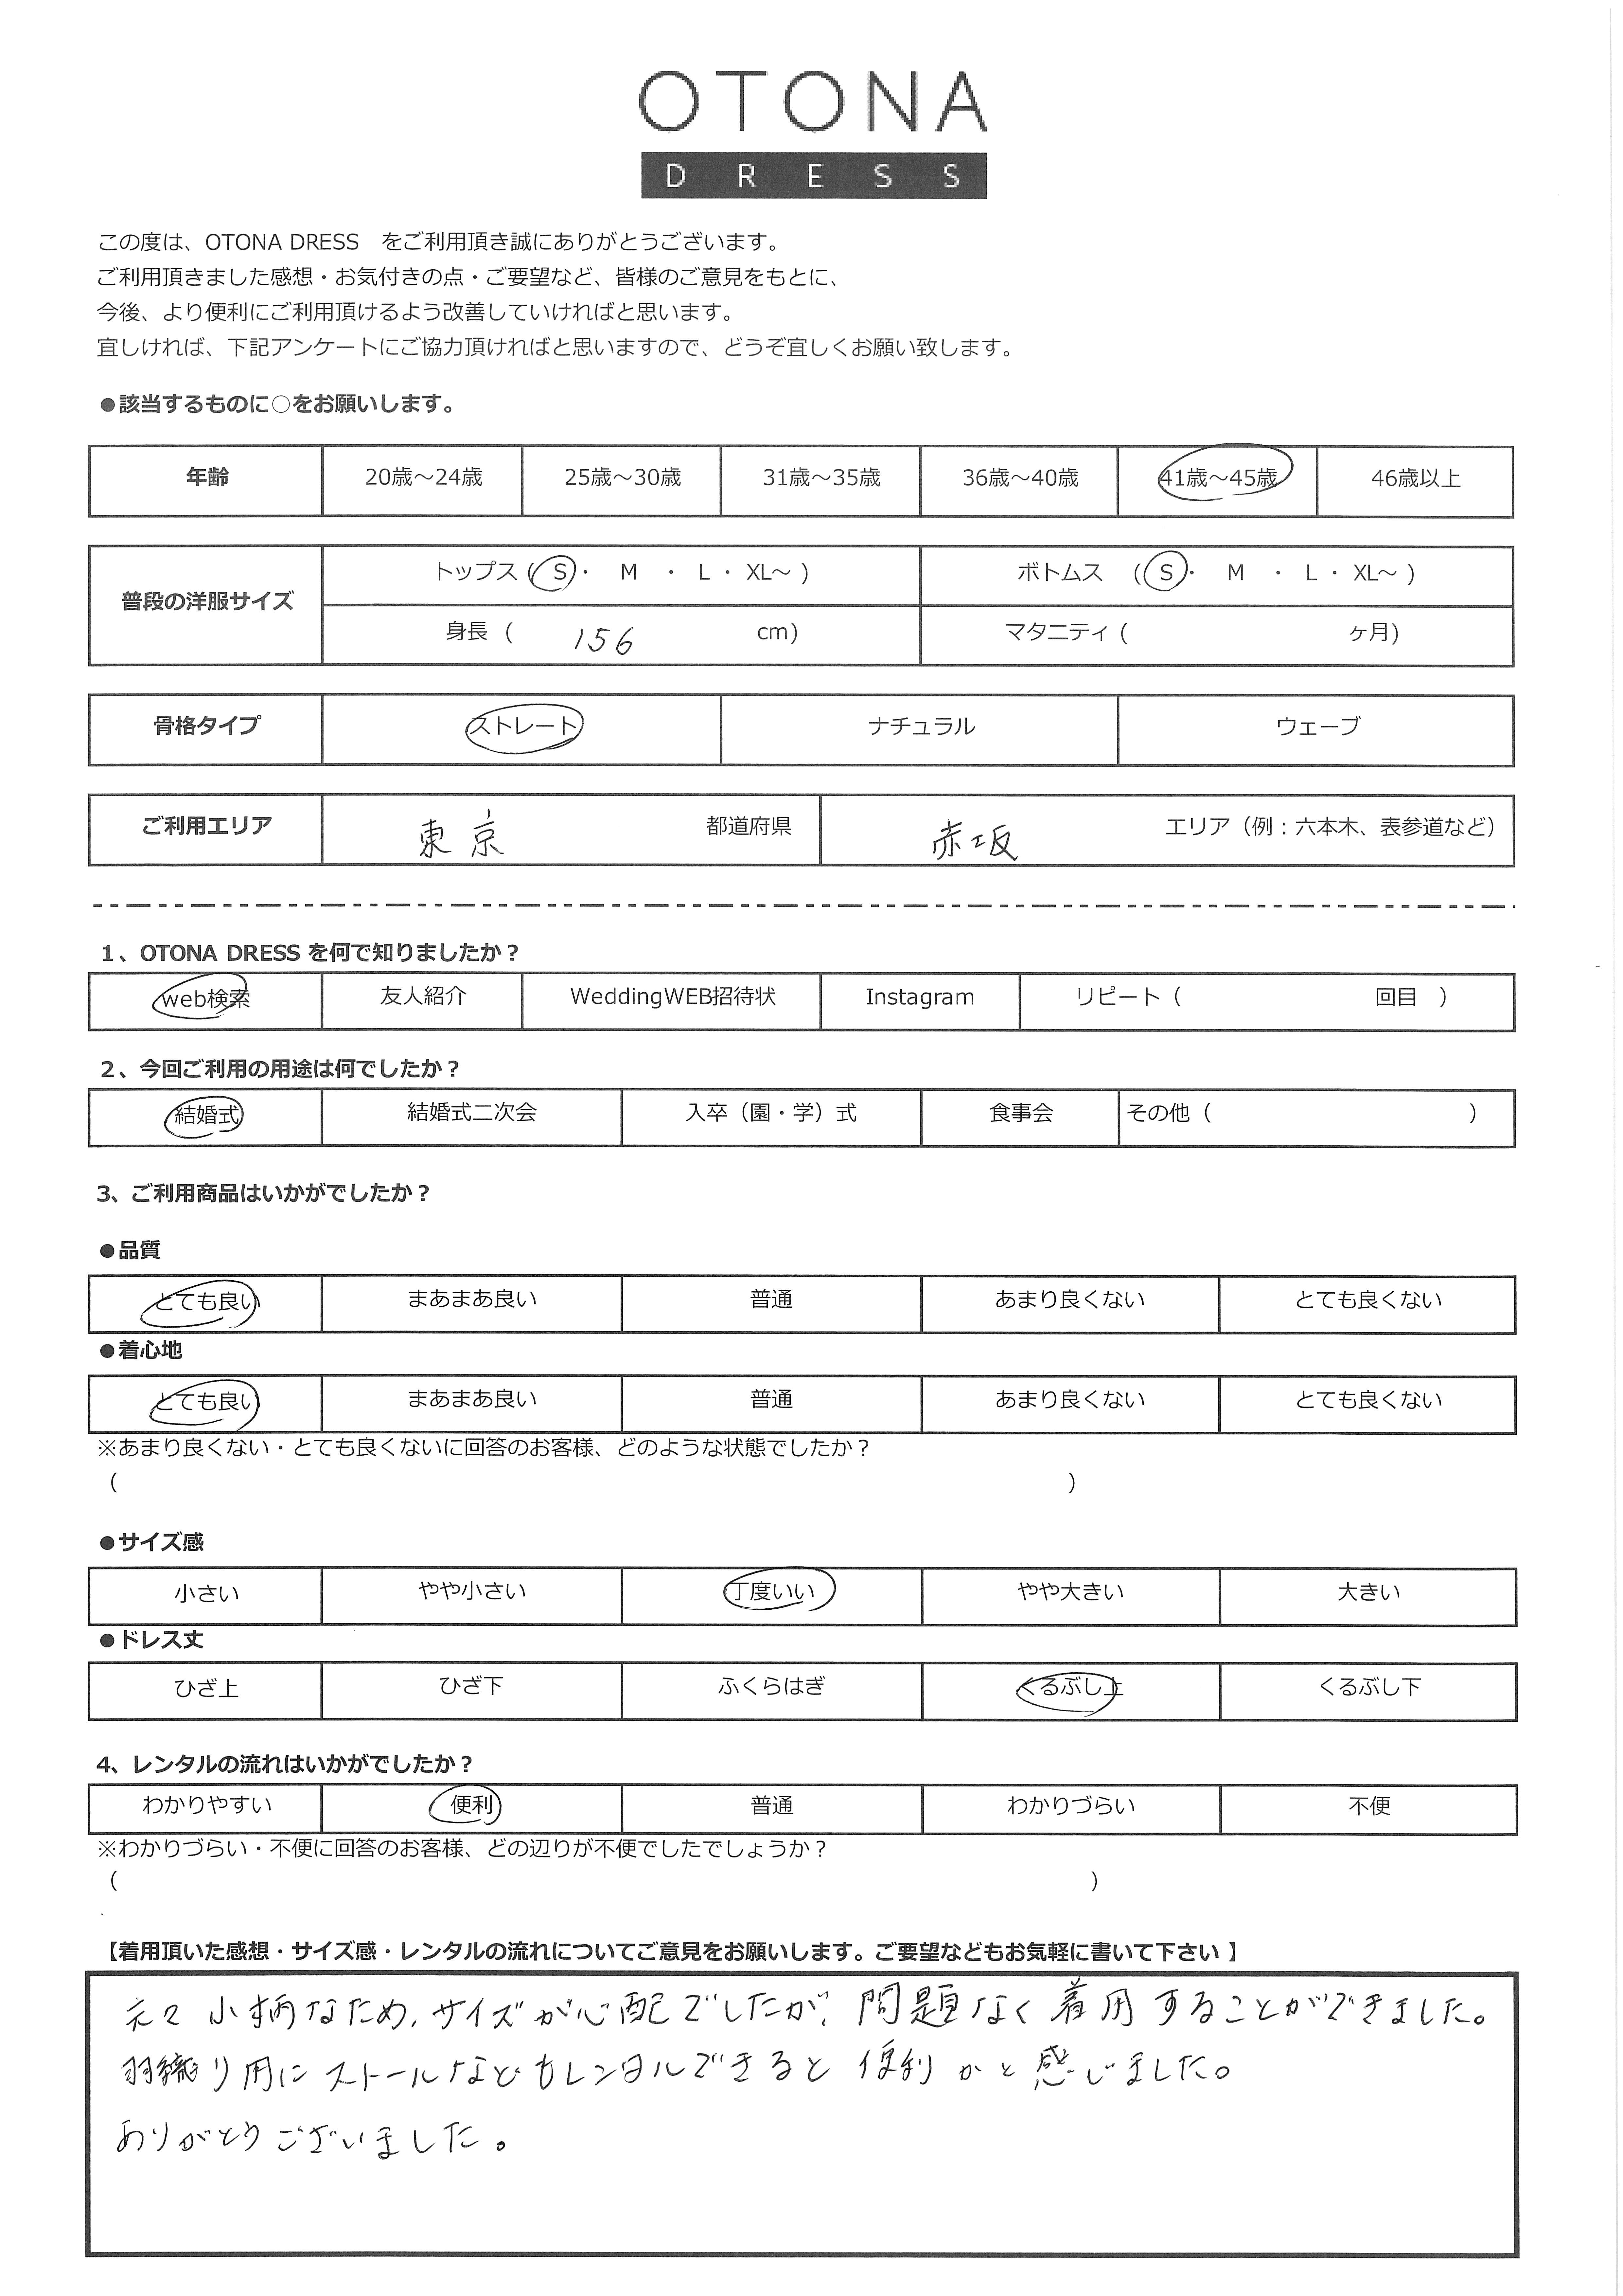 OTONA
DRESS
この度は、OTONA DRESS　をご利用頂き誠にありがとうございます。
ご利用頂きました感想・お気付きの点・ご要望など、皆様のご意見をもとに、
今後、より便利にご利用頂けるよう改善していければと思います。
宜しければ、下記アンケートにご協力頂ければと思いますので、どうぞ宜しくお願い致します。
●該当するものに○をお願いします。
年齢 20歳～24歳 25歳～30歳 31歳～35歳 36歳～40歳 41歳～45歳 46歳以上
普段の洋服サイズ トップス ( S ・ M ・ L ・ XL～ ) ボトムス ( S ・ M ・ L ・ XL～ )
身長 ( 156 cm) マタニティ ( ヶ月)
骨格タイプ ストレート ナチュラル ウェーブ
ご利用エリア 東京 都道府県 赤坂 エリア（例：六本木、表参道など）
1、OTONA DRESS を何で知りましたか？
web検索 友人紹介 WeddingWEB招待状 Instagram リピート（ 回目 ）
2、今回ご利用の用途は何でしたか？
結婚式 結婚式二次会 入卒（園・学）式 食事会 その他（ ）
3、ご利用商品はいかがでしたか？
●品質
とても良い まあまあ良い 普通 あまり良くない とても良くない
●着心地
とても良い まあまあ良い 普通 あまり良くない とても良くない
※あまり良くない・とても良くないに回答のお客様、どのような状態でしたか？
（ ）
●サイズ感
小さい やや小さい 丁度いい やや大きい 大きい
●ドレス丈
ひざ上 ひざ下 ふくらはぎ くるぶし上 くるぶし下
4、レンタルの流れはいかがでしたか？
わかりやすい 便利 普通 わかりづらい 不便
※わかりづらい・不便に回答のお客様、どの辺りが不便でしたでしょうか？
（ ）
【着用頂いた感想・サイズ感・レンタルの流れについてご意見をお願いします。ご要望などもお気軽に書いて下さい 】
元々小柄なため、サイズが心配でしたが、問題なく着用することができました。
羽織り用にストールなどもレンタルできると便利かと感じました。
ありがとうございました。